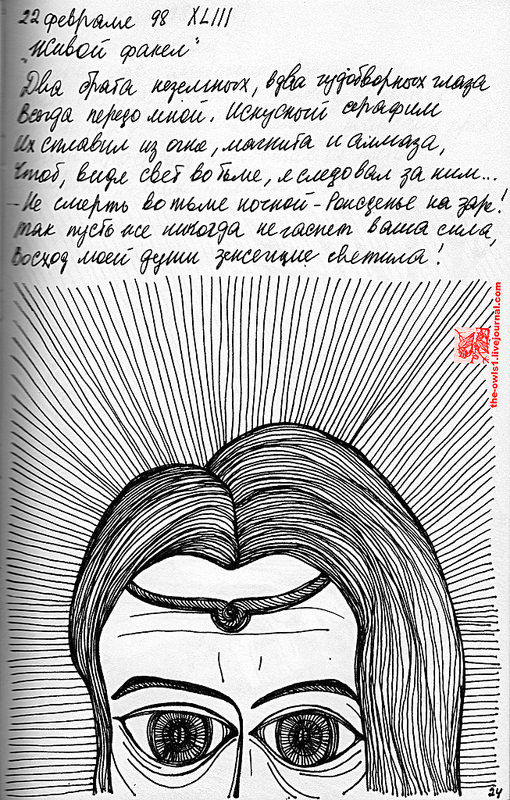 22 февраля 98 XLIII
„Живой факел“
Два брата неземных, два чудотворных глаза
Всегда передо мной. Искусный серафим
Их сплавил из огня, магнита и алмаза,
Чтоб, видя свет во тьме, я следовал за ним...
- Не смерть во тьме ночной - Рожденье на заре!
Так пусть же никогда не гаснет ваша сила,
Восход моей души зажегшие светила!
the-owls1.livejournal.com
24